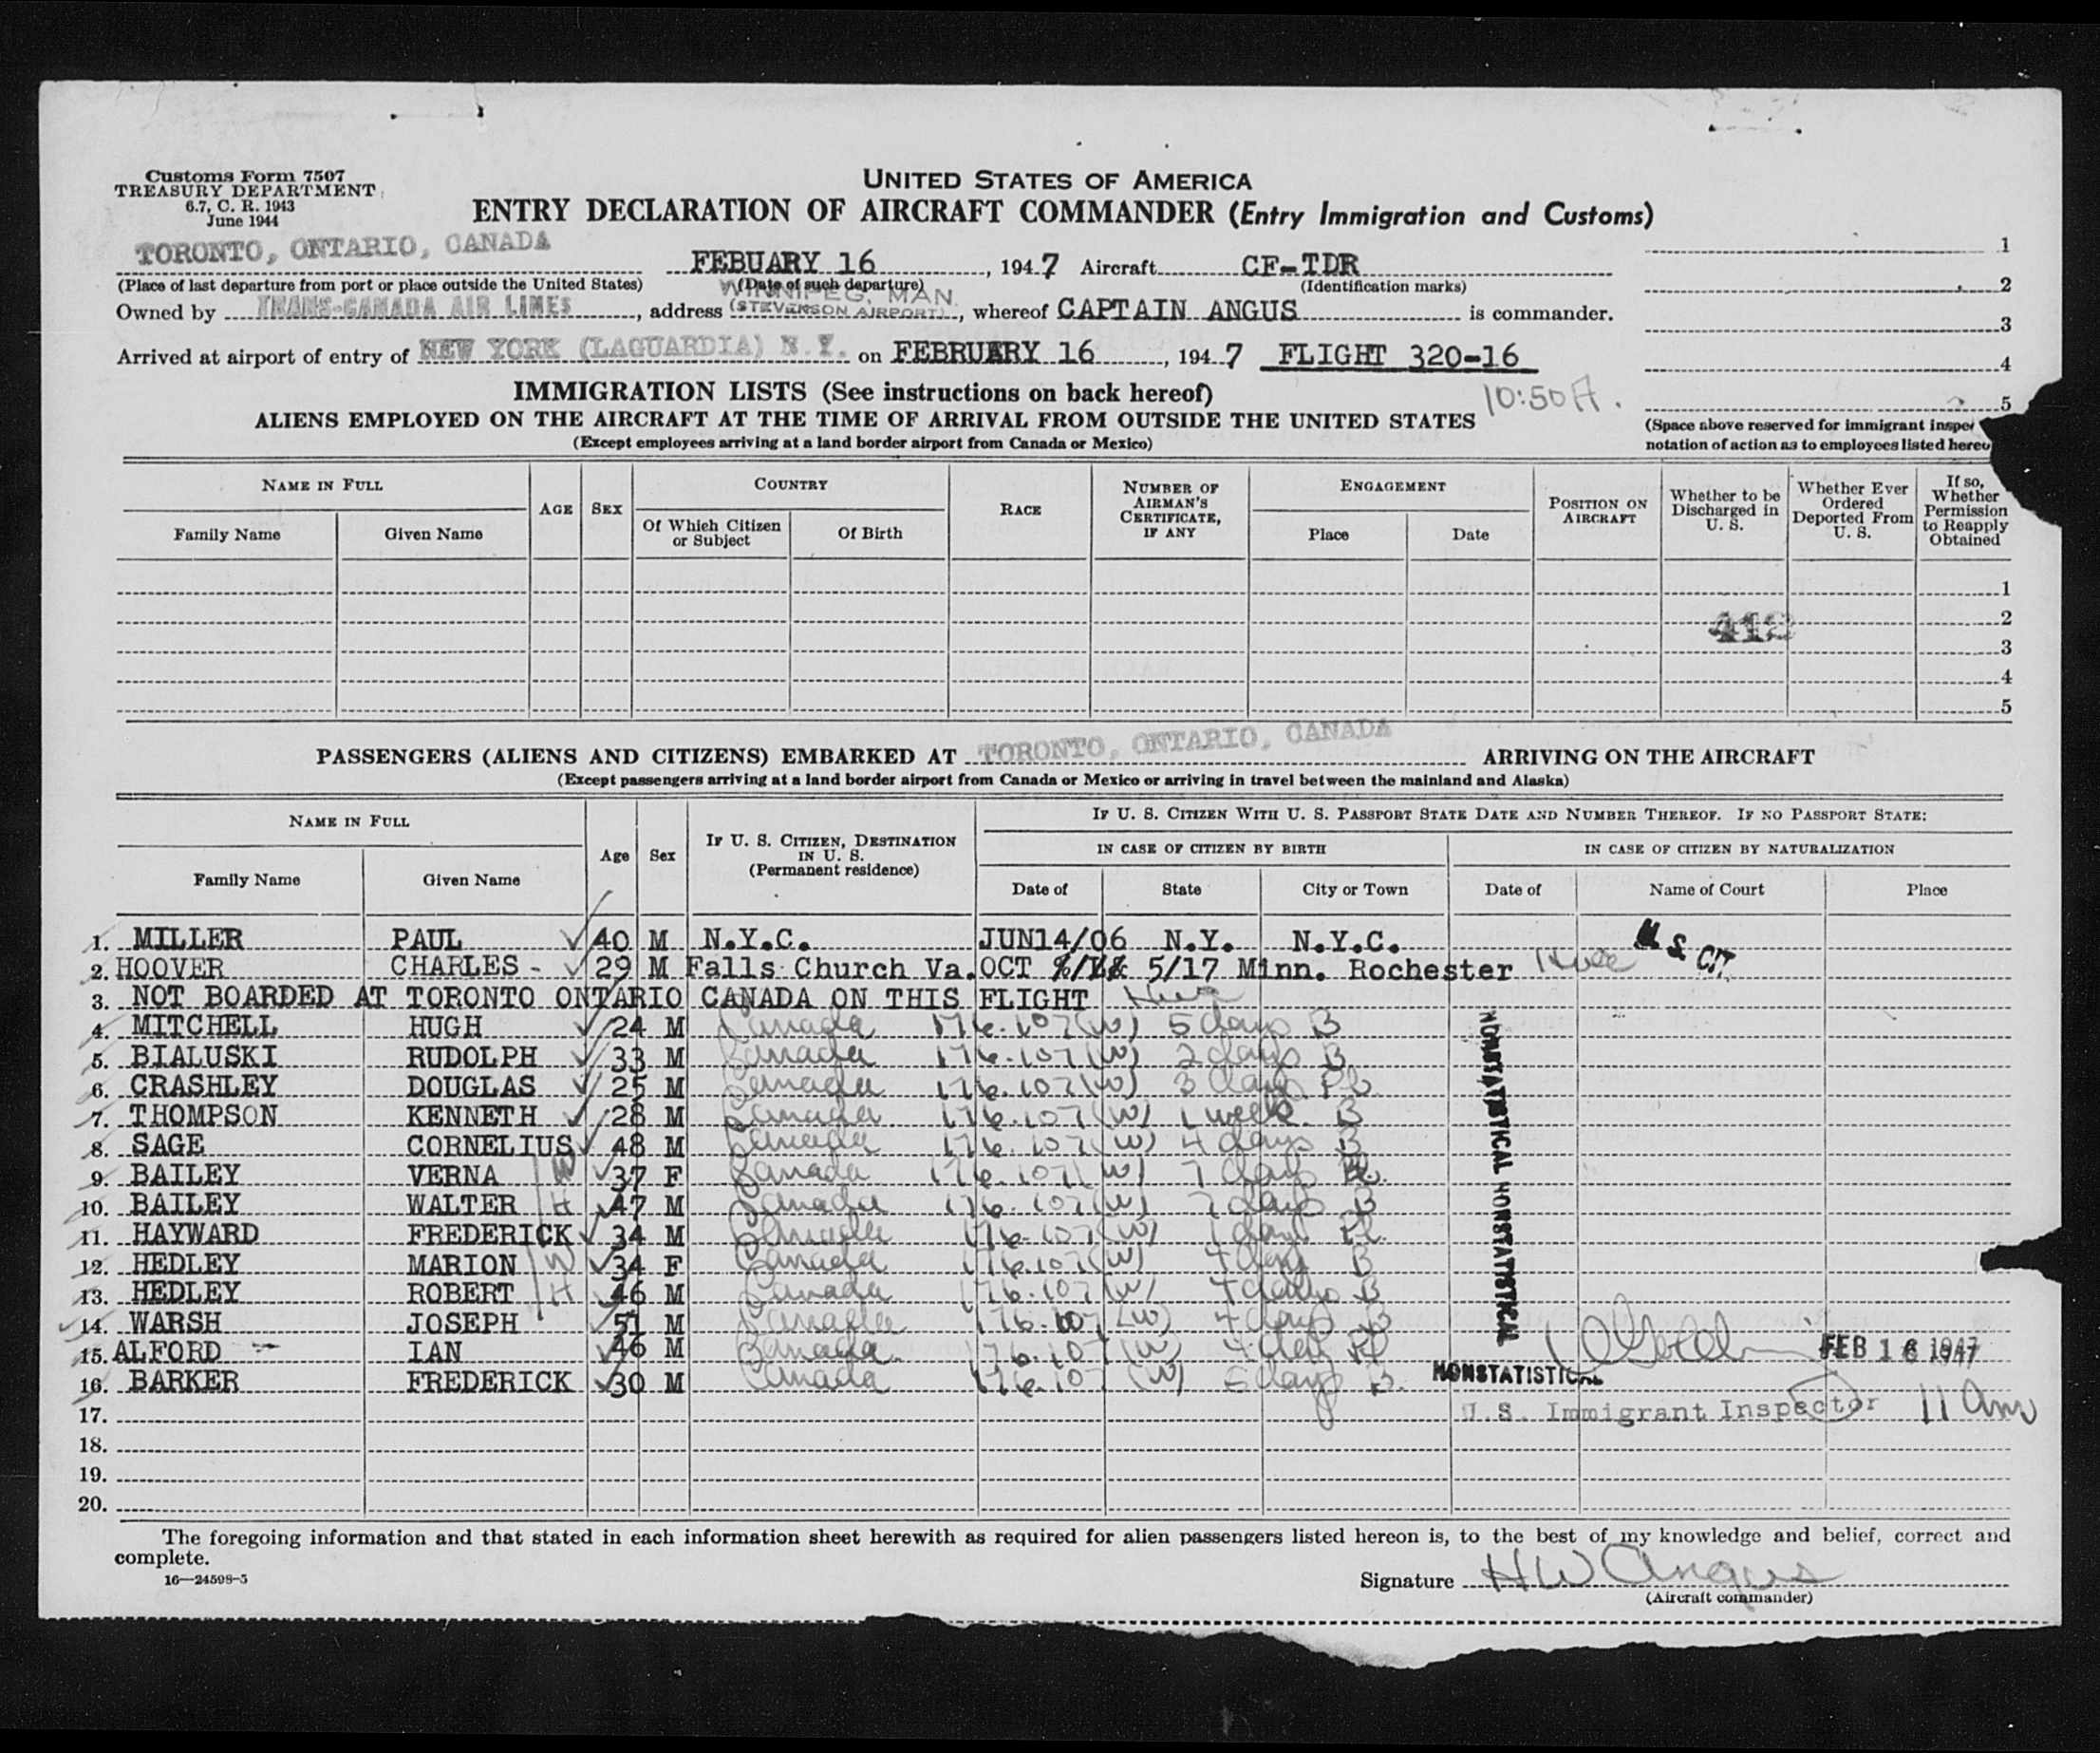 Customs Form 7507
TREASURY DEPARTMENT
6.7, C. R. 1943
June 1944
UNITED STATES OF AMERICA
ENTRY DECLARATION OF AIRCRAFT COMMANDER (Entry Immigration and Customs)
TORONTO, ONTARIO, CANADA FEBUARY 16, 1947 Aircraft CF-TDR
(Place of last departure from port or place outside the United States) (Date of such departure) (Identification marks)
WINNIPEG, MAN.
Owned by TRANS-CANADA AIR LINES, address (STEVENSON AIRPORT), whereof CAPTAIN ANGUS is commander.
Arrived at airport of entry of NEW YORK (LAGUARDIA) N.Y. on FEBRUARY 16, 1947 FLIGHT 320-16
1
2
3
4
5
IMMIGRATION LISTS (See instructions on back hereof)
10:50 A.
ALIENS EMPLOYED ON THE AIRCRAFT AT THE TIME OF ARRIVAL FROM OUTSIDE THE UNITED STATES
(Except employees arriving at a land border airport from Canada or Mexico)
(Space above reserved for immigrant inspe
notation of action as to employees listed here
NAME IN FULL AGE SEX COUNTRY RACE NUMBER OF AIRMAN'S CERTIFICATE, IF ANY ENGAGEMENT POSITION ON AIRCRAFT Whether to be Discharged in U. S. Whether Ever Ordered Deported From U. S. If so, Whether Permission to Reapply Obtained
Family Name Given Name Of Which Citizen or Subject Of Birth Place Date
1
2
412
3
4
5
PASSENGERS (ALIENS AND CITIZENS) EMBARKED AT TORONTO, ONTARIO, CANADA ARRIVING ON THE AIRCRAFT
(Except passengers arriving at a land border airport from Canada or Mexico or arriving in travel between the mainland and Alaska)
NAME IN FULL Age Sex IF U. S. CITIZEN, DESTINATION IN U. S. (Permanent residence) IF U. S. CITIZEN WITH U. S. PASSPORT STATE DATE AND NUMBER THEREOF. IF NO PASSPORT STATE:
IN CASE OF CITIZEN BY BIRTH IN CASE OF CITIZEN BY NATURALIZATION
Family Name Given Name Date of State City or Town Date of Name of Court Place
1. MILLER PAUL 40 M N.Y.C. JUN14/06 N.Y. N.Y.C. U S CIT
2. HOOVER CHARLES - 29 M Falls Church Va. OCT 5/17 Minn. Rochester
3. NOT BOARDED AT TORONTO ONTARIO CANADA ON THIS FLIGHT
4. MITCHELL HUGH 24 M Canada 176.107 (W) 5 days B
5. BIALUSKI RUDOLPH 33 M Canada 176.107 (W) 2 days B
6. CRASHLEY DOUGLAS 25 M Canada 176.107 (W) 3 days Pl.
7. THOMPSON KENNETH 28 M Canada 176.107 (W) 1 week B
8. SAGE CORNELIUS 48 M Canada 176.107 (W) 4 days B
9. BAILEY VERNA W 37 F Canada 176.107 (W) 7 days
10. BAILEY WALTER H 47 M Canada 176.107 (W) 7 days B
11. HAYWARD FREDERICK 34 M Canada 176.107 (W) 1 day Pl.
12. HEDLEY MARION W 34 F Canada 176.107 (W) 4 days B
13. HEDLEY ROBERT H 46 M Canada 176.107 (W) 4 days B
14. WARSH JOSEPH 51 M Canada 176.107 (W) 4 days B
15. ALFORD IAN 46 M Canada 176.107 (W) 4 days Pl FEB 16 1947
16. BARKER FREDERICK 30 M Canada 176.107 (W) days B. NONSTATISTICAL
NONSTATISTICAL NONSTATISTICAL
17. U.S. Immigrant Inspector 11 am
18.
19.
20.
The foregoing information and that stated in each information sheet herewith as required for alien passengers listed hereon is, to the best of my knowledge and belief, correct and
complete.
16—24598-5
Signature H W Angus
(Aircraft commander)